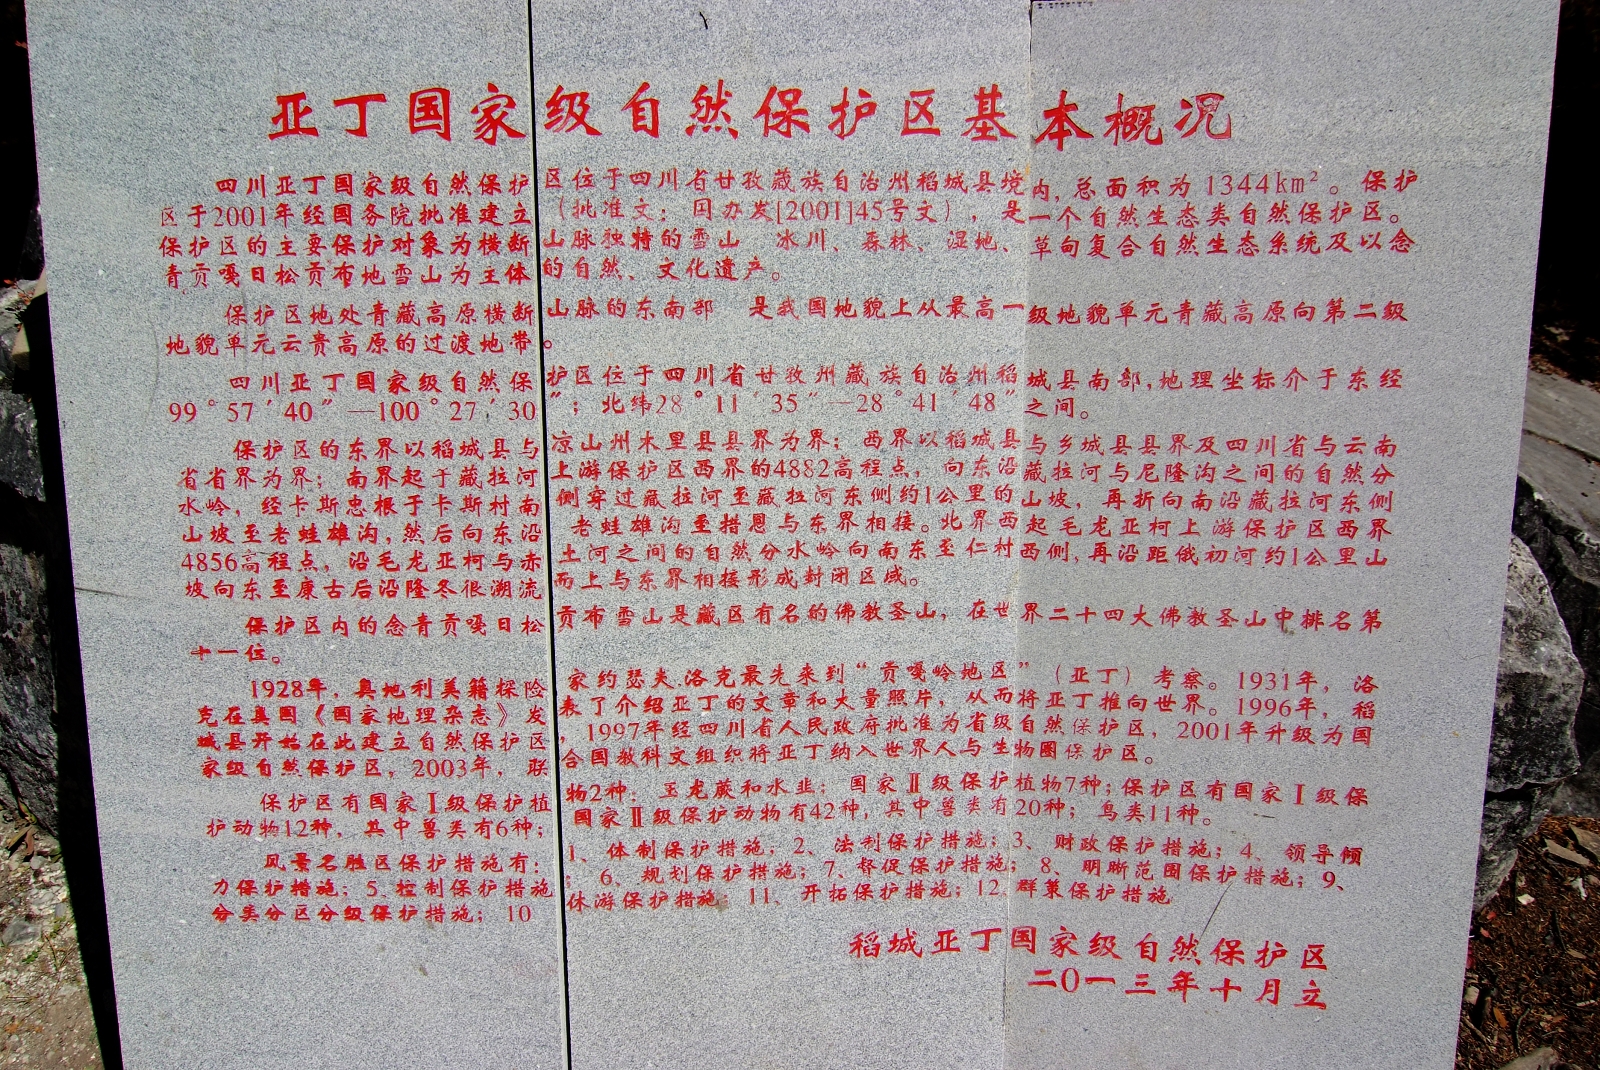 亚丁国家级自然保护区基本概况
四川亚丁国家级自然保护区位于四川省甘孜藏族自治州稻城县境内,总面积为1344km²。保护
区于2001年经国务院批准建立（批准文：国办发[2001]45号文），是一个自然生态类自然保护区。
保护区的主要保护对象为横断山脉独特的雪山 冰川、森林、湿地、草甸复合自然生态系统及以念
青贡嘎日松贡布地雪山为主体的自然、文化遗产。
保护区地处青藏高原横断山脉的东南部 是我国地貌上从最高一级地貌单元青藏高原向第二级
地貌单元云贵高原的过渡地带。
四川亚丁国家级自然保护区位于四川省甘孜州藏族自治州稻城县南部,地理坐标介于东经
99°57′40″—100°27′30″；北纬28°11′35″—28°41′48″之间。
保护区的东界以稻城县与凉山州木里县县界为界；西界以稻城县与乡城县县界及四川省与云南
省省界为界；南界起于藏拉河上游保护区西界的4882高程点，向东沿藏拉河与尼隆沟之间的自然分
水岭，经卡斯忠根于卡斯村南侧穿过藏拉河至藏拉河东侧约1公里的山坡，再折向南沿藏拉河东侧
山坡至老蛙雄沟,然后向东沿老蛙雄沟至措恩与东界相接。北界西起毛龙亚柯上游保护区西界
4856高程点，沿毛龙亚柯与赤土河之间的自然分水岭向南东至仁村西侧,再沿距俄初河约1公里山
坡向东至康古后沿隆冬很溯流而上与东界相接形成封闭区域。
保护区内的念青贡嘎日松贡布雪山是藏区有名的佛教圣山，在世界二十四大佛教圣山中排名第
十一位。
1928年，奥地利美籍探险家约瑟夫.洛克最先来到“贡嘎岭地区”（亚丁）考察。1931年，洛
克在美国《国家地理杂志》发表了介绍亚丁的文章和大量照片，从而将亚丁推向世界。1996年，稻
城县开始在此建立自然保护区，1997年经四川省人民政府批准为省级自然保护区，2001年升级为国
家级自然保护区，2003年，联合国教科文组织将亚丁纳入世界人与生物圈保护区。
保护区有国家Ⅰ级保护植物2种：玉龙蕨和水韭；国家Ⅱ级保护植物7种;保护区有国家Ⅰ级保
护动物12种，其中兽类有6种；国家Ⅱ级保护动物有42种，其中兽类有20种；鸟类11种。
风景名胜区保护措施有：1、体制保护措施；2、法制保护措施；3、财政保护措施；4、领导倾
力保护措施；5.控制保护措施；6、规划保护措施；7、督促保护措施；8、明晰范围保护措施；9、
分类分区分级保护措施；10 休游保护措施；11、开拓保护措施；12.群策保护措施
稻城亚丁国家级自然保护区
二〇一三年十月立